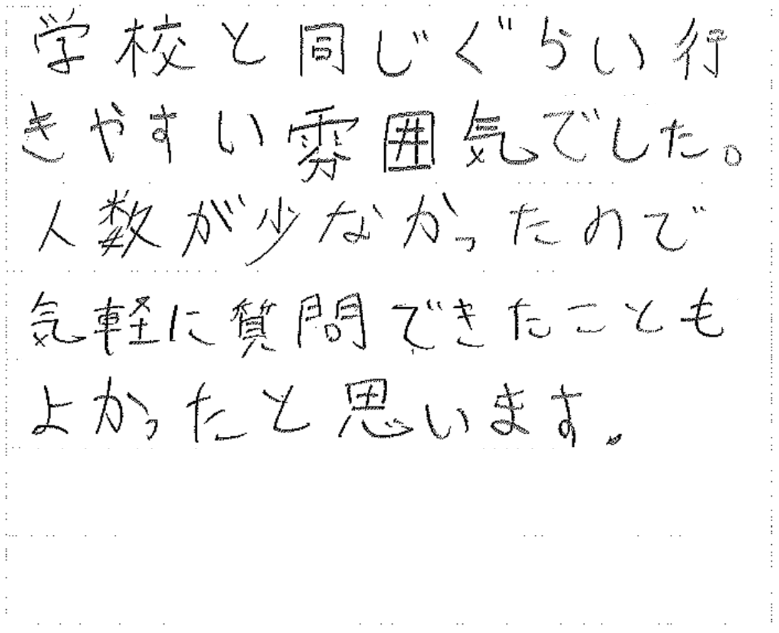 学校と同じぐらい行
きやすい雰囲気でした。
人数が少なかったので
気軽に質問できたことも
よかったと思います。